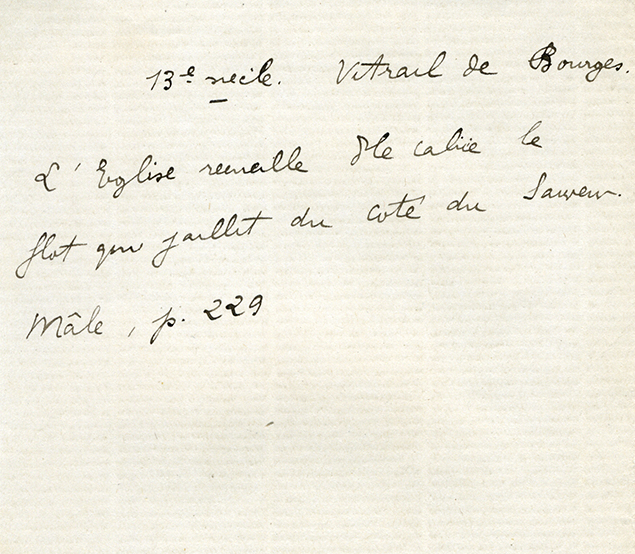 13e siecle. Vitrail de Bourges.
L'Eglise recueille calice le
flot qui jaillit du coté du Sauveur.
Mâle, p. 229